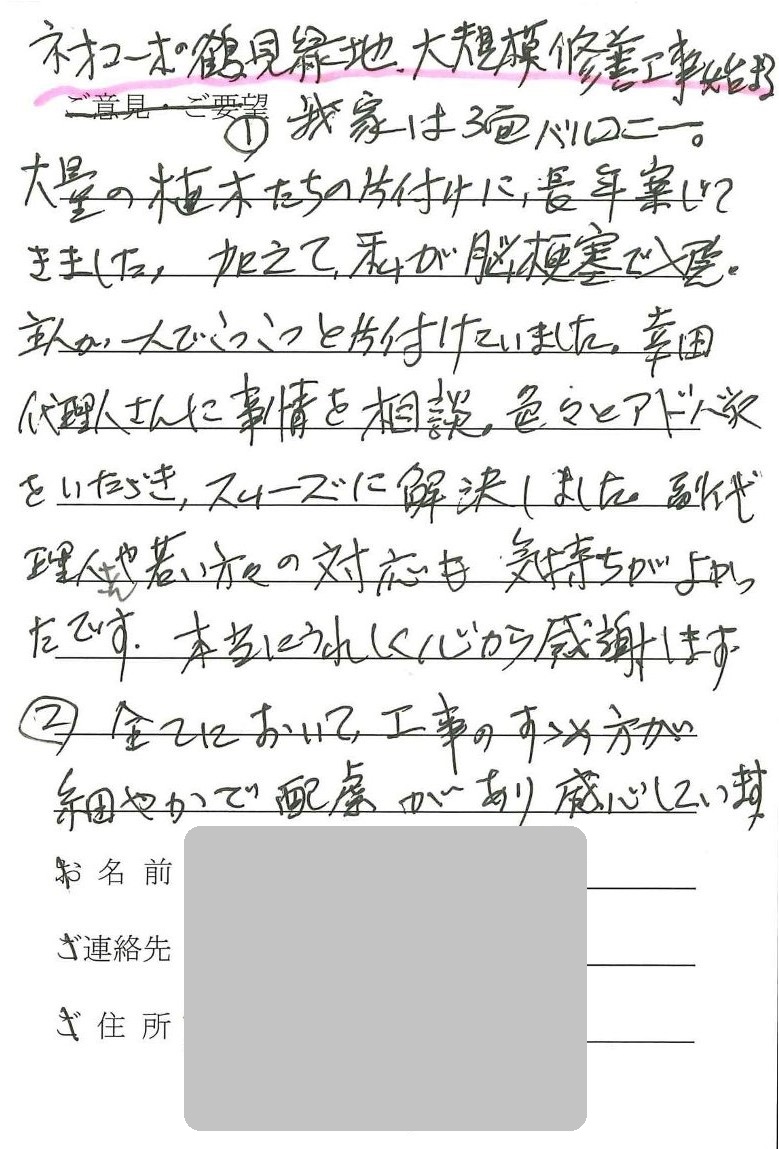 ネオコーポ鶴見緑地、大規模修善工事始まる
ご意見・ご要望
① 我家は3面バルコニー。
大量の植木たちの片付けに、長年案じて
きました。加えて、私が脳梗塞で入院。
主人が一人でこつこつと片付けていました。幸田
代理人さんに事情を相談。色々とアドバイス
をいただき、スムーズに解決しました。副代
理人さんや若い方々の対応も気持ちがよかっ
たです。本当にうれしく心から感謝します
② 全てにおいて、工事のすゝめ方が
細やかで配慮があり感心しています
お名前
ご連絡先
ご住所